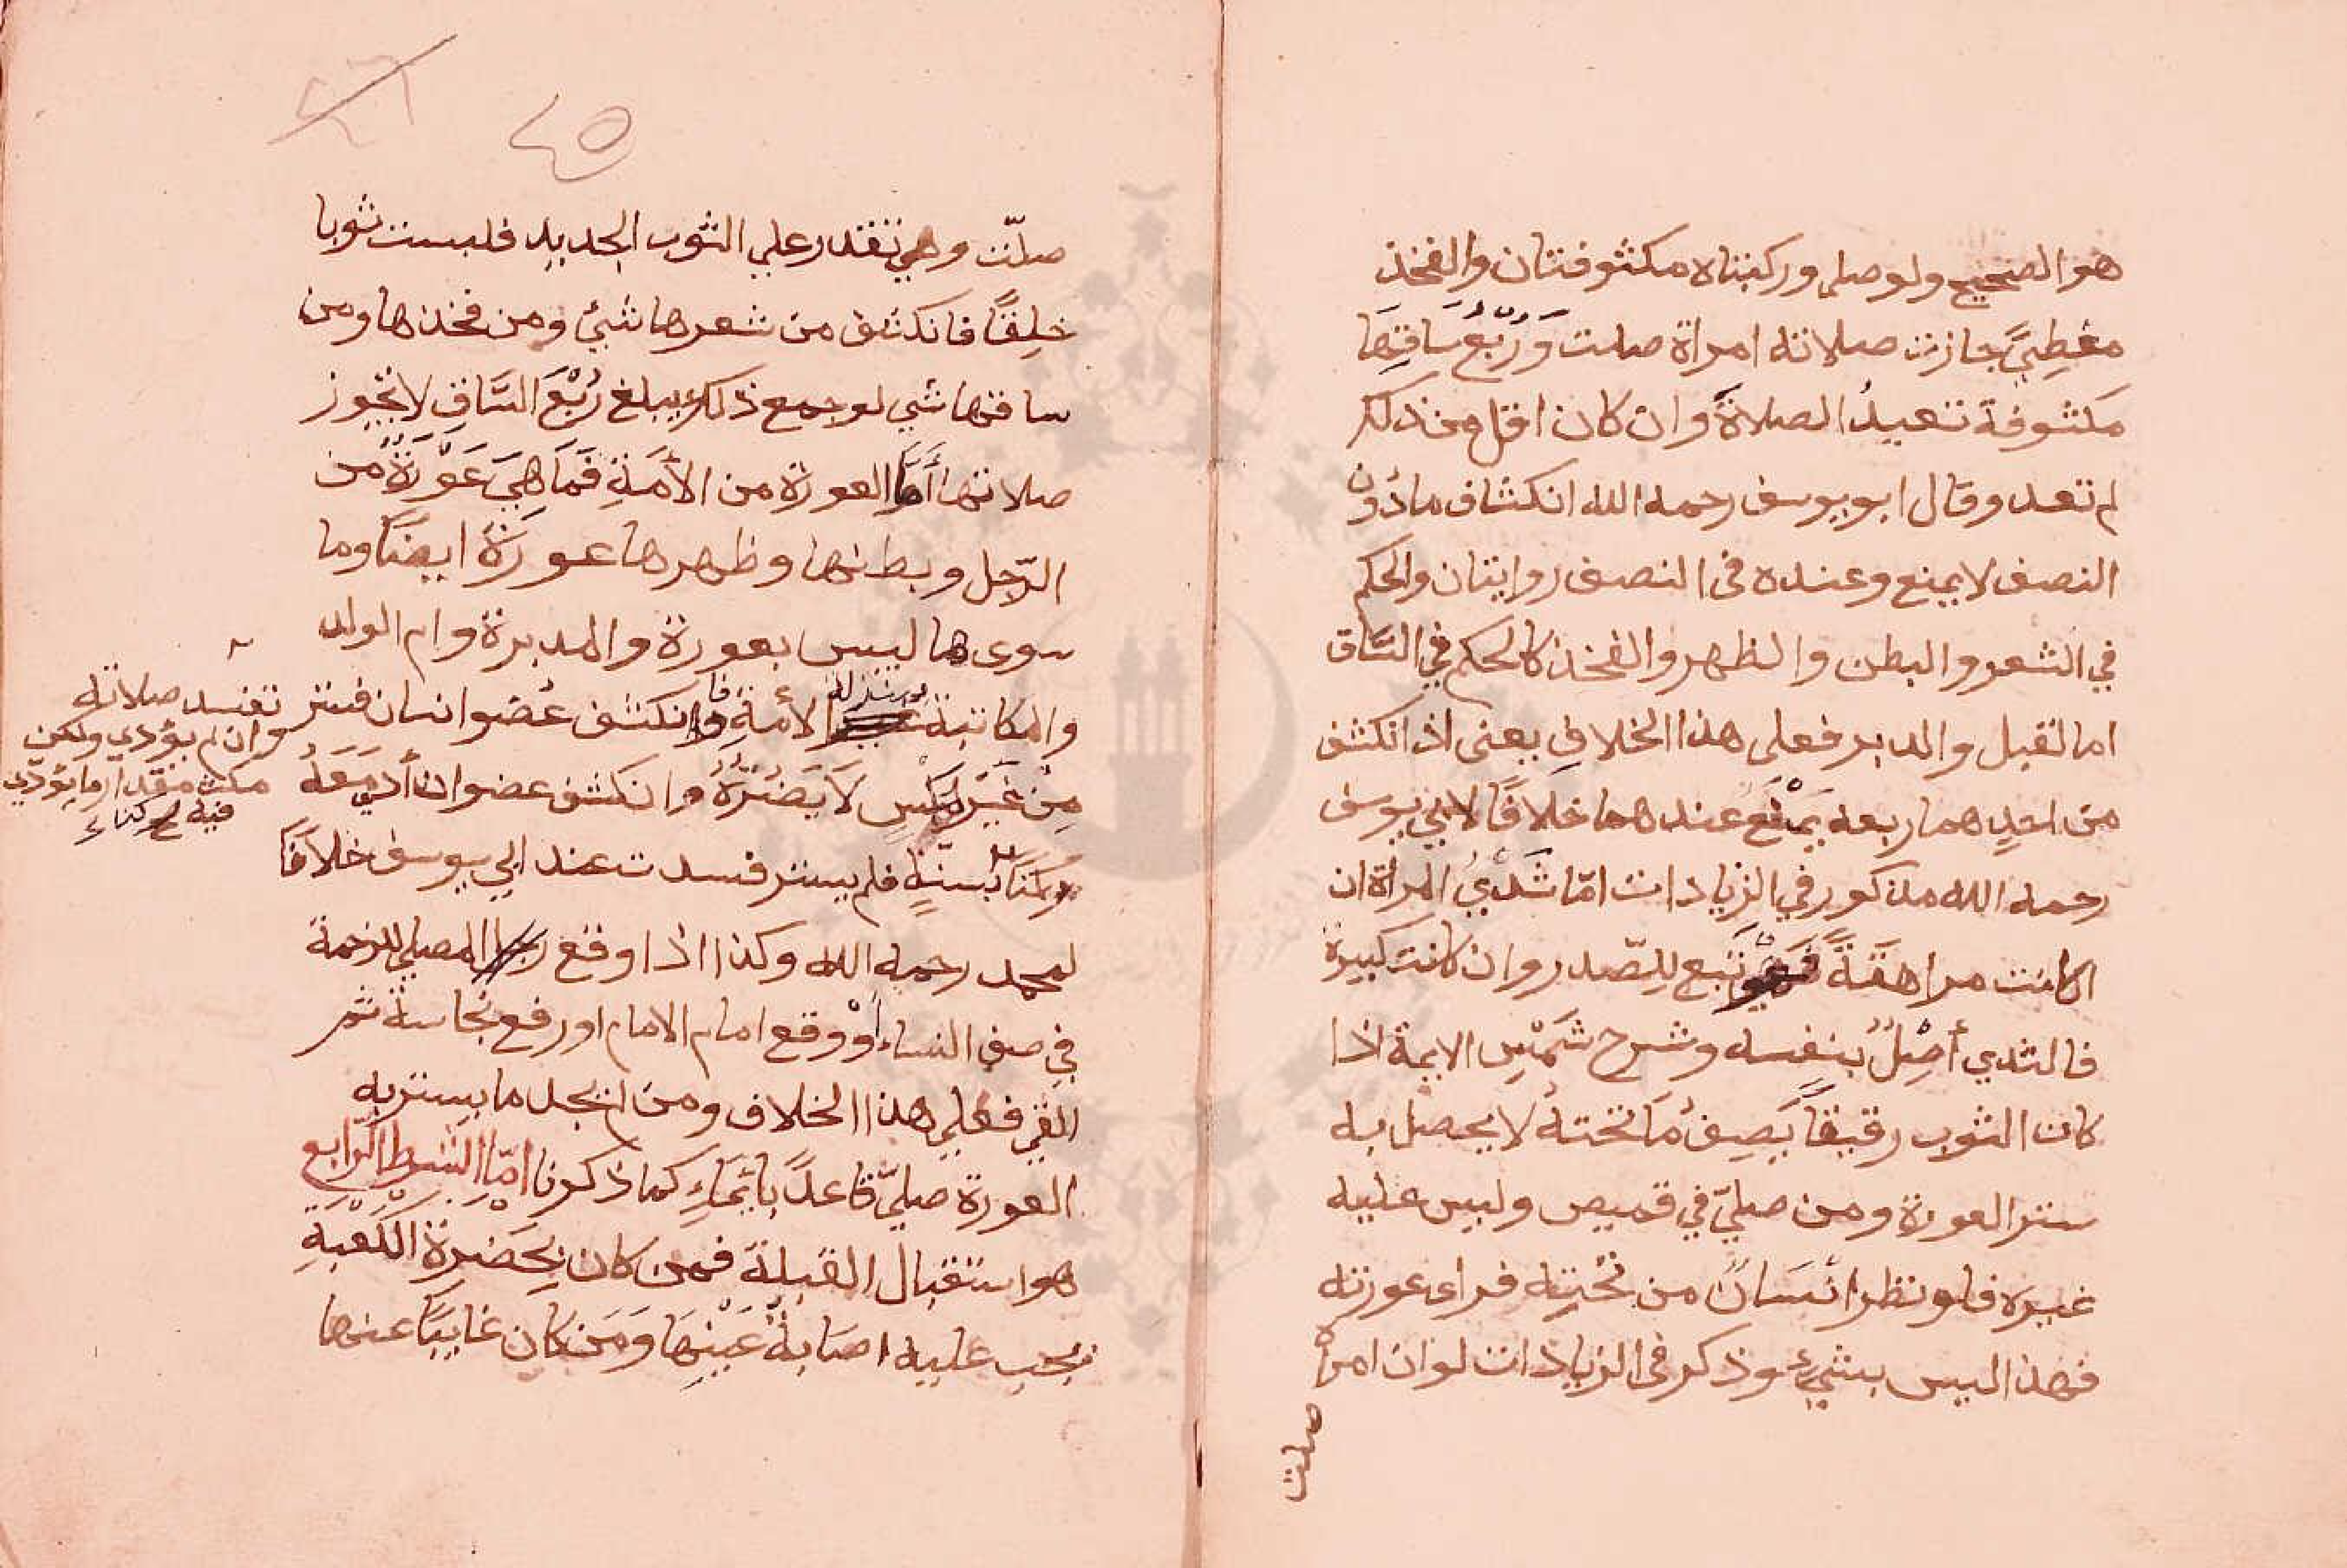 هو الصحيح ولو صلى وركبتاه مكشوفتان والفخذ
مغطيً جازت صلاته امراة صلت وَرُبُعُ ساقِهَا
مكشوفة تعيدُ الصلاةَ وان كان اقل من ذلك
لم تعد وقال ابو يوسف رحمه الله انكشاف مادُون
النصف لا يمنع وعنده فى النصف روايتان والحكم
في الشعر والبطن والظهر والفخذ كالحكم في السَّاق
اما القبل والدبر فعلى هذا الخلافِ يعنى اذ انكشف
من احدٍ هما ربعه يَمْنَعُ عندهما خلافًا لابي يوسف
رحمه الله مذكور في الزيادات امّا ثَدْيُ المرأة ان
كانت مراهقةً فهو تبع للصّدر وان كانت كبيرة
فالثدي أصْلٌ بنفسه وشرح شَمْسِ الايمة اذا
كان الثوب رقيقًا يَصِفُ مَا تحتهُ لا يحصل به
ستر العورة ومن صليّ في قميص وليس عليه
غيره فلو نظر انْسَانٌ من تحتِهِ فراى عورته
فهذا ليس بشيءٍ وذكر فى الزيادات لو ان امرأة
صلت
٤٥
صلّت وهي تقدر على الثوب الجديد فلبست ثوبا
خلِقًا فانكشف من شعرها شيئ ومن فخذها ومن
ساقها شي لو جمع ذلك يبلغ رُبْعَ السَّاقِ لا تجوز
صلاتها أمَّا العورة من الأمَةِ فَمَا هِيَ عَوْرَةٌ من
الرّجل وبطنها وظهرها عورَةٌ ايضًا وما
سوى ها ليس بعورة والمدبرة وام الولد
والمكاتبة بمنزلة الأمةِ فا وانكشف عضو انسان فستر
مِنْ غَيْرِ لَبْسٍ لاَ يَضُرُّهُ وان انكشف عضو ان أدي مَعَهُ
تفسد صلاته
وان لم يؤدي ولكن
مكث مقدار ما يؤدّي
فيه ركناء
رُكنًا بسنّةٍ فلم يستر فسدت عند ابي يوسف خلافًا
لمحمد رحمه الله وكذا اذا وقع المصلي للزحمة
في صف النساء أوْ وقع امام الامام او رفع نجاسة ثم
القي فعلي هذا الخلاف ومن لم يجد ما يستر به
العورة صليّ قاعدًا بايمَاءٍ كما ذكرنا امّا الشرط الرّابع
هو استقبال القبلة فمن كان بِحَضرة الكعبةِ
فيجب عليه اصَابةُ عَيْنِهَا وَمَن كان غايبًا عنها